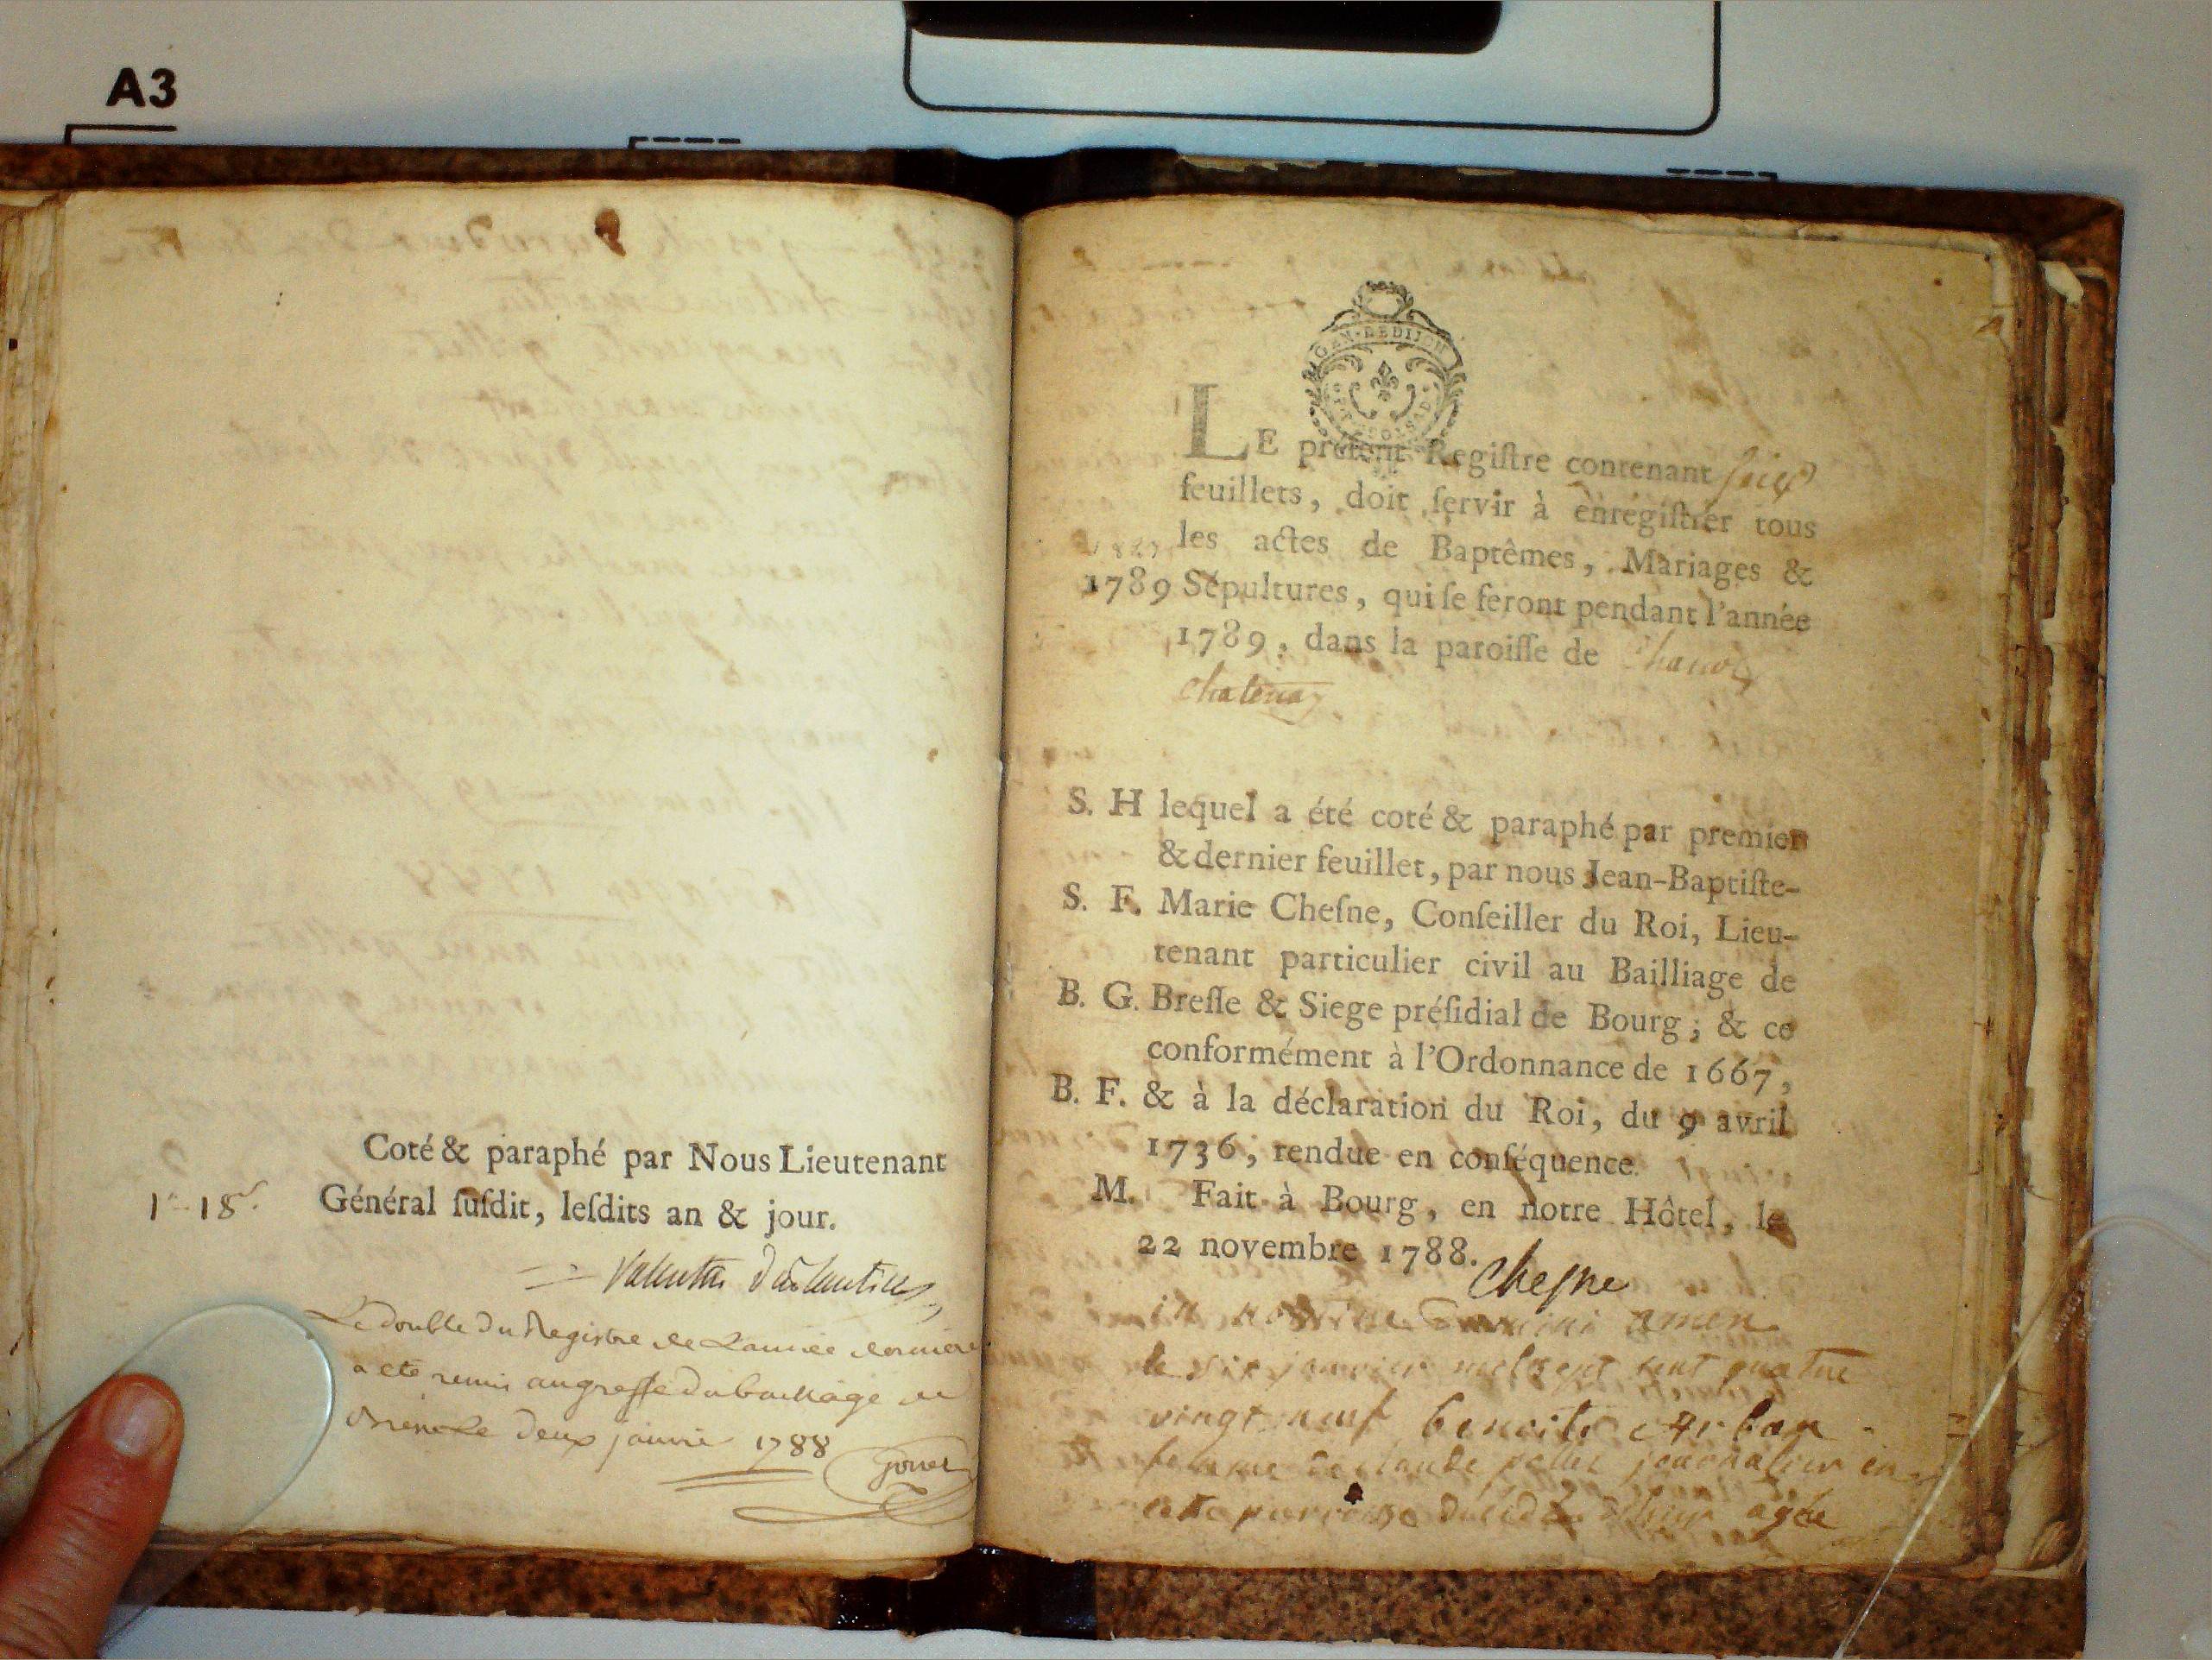 A3
Coté & paraphé par Nous Lieutenant
1 - 18 Général ſuſdit, leſdits an & jour.
Le double du Registre de L'année derniere
a eté remis au greffe du bailliage de
Le deux janvié 1788
GEN. DE DIJON
LE préſent Regiſtre contenant
feuillets, doit ſervir à enrégiſtrer tous
les actes de Baptêmes, Mariages &
1789 Sépultures, qui ſe feront pendant l'année
1789, dans la paroiſſe de
chatenay
S. H lequel a été coté & paraphé par premier
& dernier feuillet, par nous Jean-Baptiſte-
S. F. Marie Cheſne, Conſeiller du Roi, Lieu-
tenant particulier civil au Bailliage de
B. G. Breſſe & Siege préſidial de Bourg; & ce
conformément à l'Ordonnance de 1667,
B. F. & à la déclaration du Roi, du 9 avril
1736, rendue en conſéquence.
M. Fait à Bourg, en notre Hôtel, le
22 novembre 1788.
Cheſne
in nomine Domini amen
le six janvier mil sept cent quatre
vingt neuf benoite Arban
femme de claude journalier en
cette parroisse agée